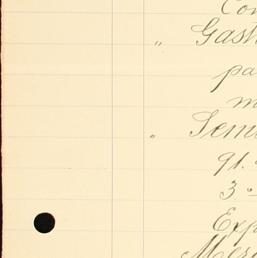 Con
" Gast
pa
m
" Semi
91.
3
Exp
Mer